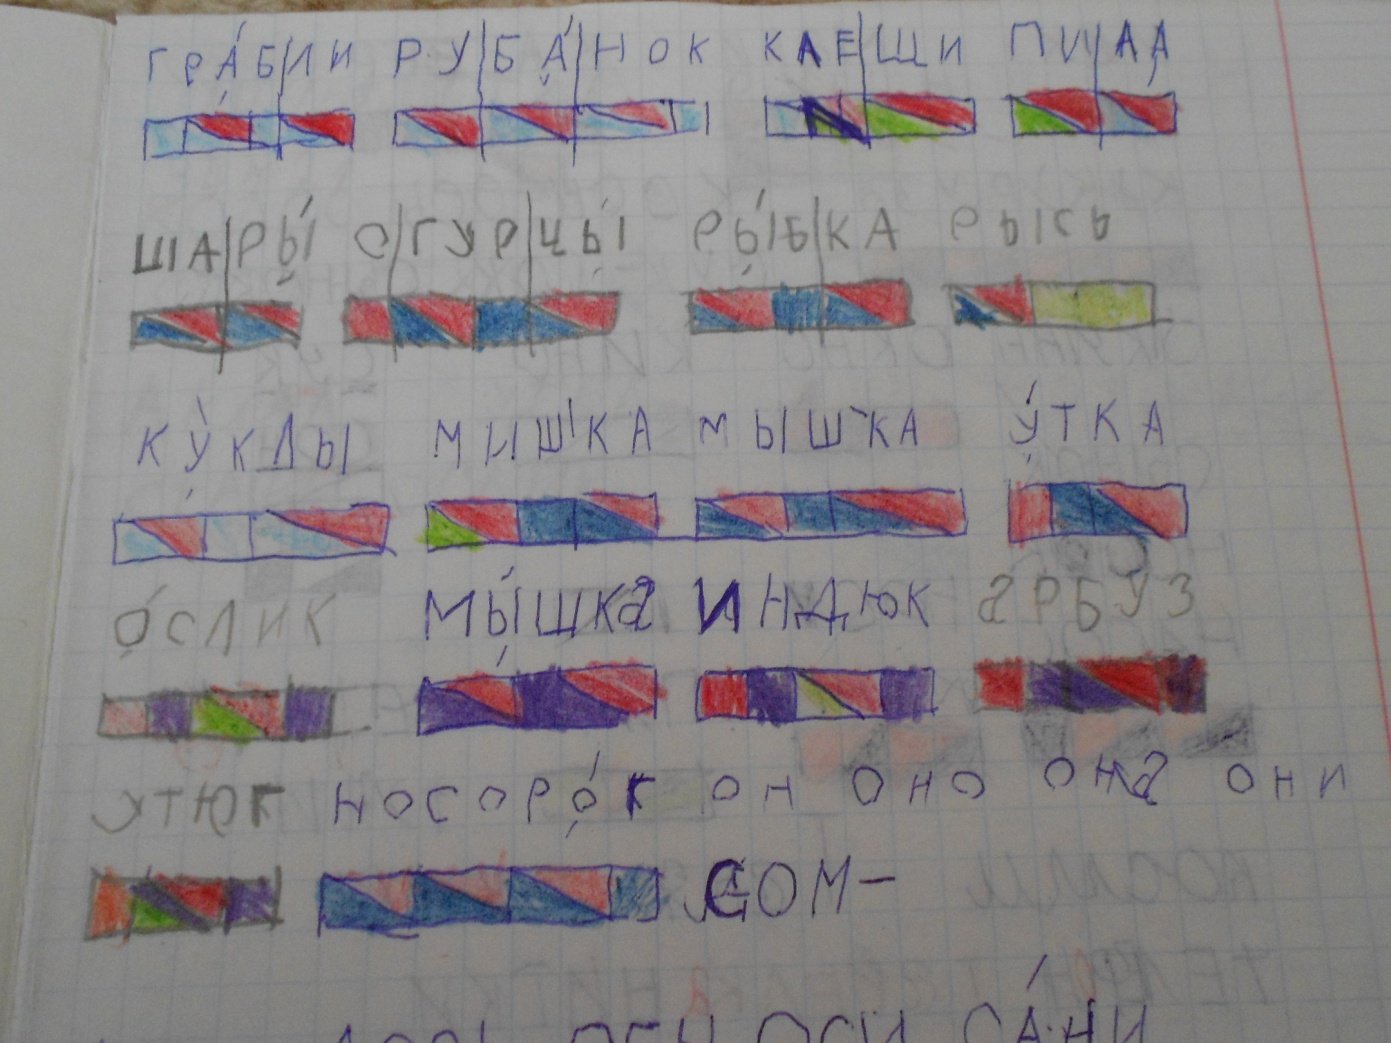 ГРА́Б/ЛИ РУ/БА́/НОК КЛЕ/ЩИ ПИ/ЛА
ША/РЫ́ О/ГУР/ЦЫ́ РЫ́Б/КА РЫСЬ
КУ́КЛЫ МИШКА МЫШКА У́ТКА
О́СЛИК МЫ́ШКА ИНДЮК АРБУЗ
УТЮГ НОСОРО́Г ОН ОНО ОНА ОНИ
СОМ-
ОСИ СА́НИ